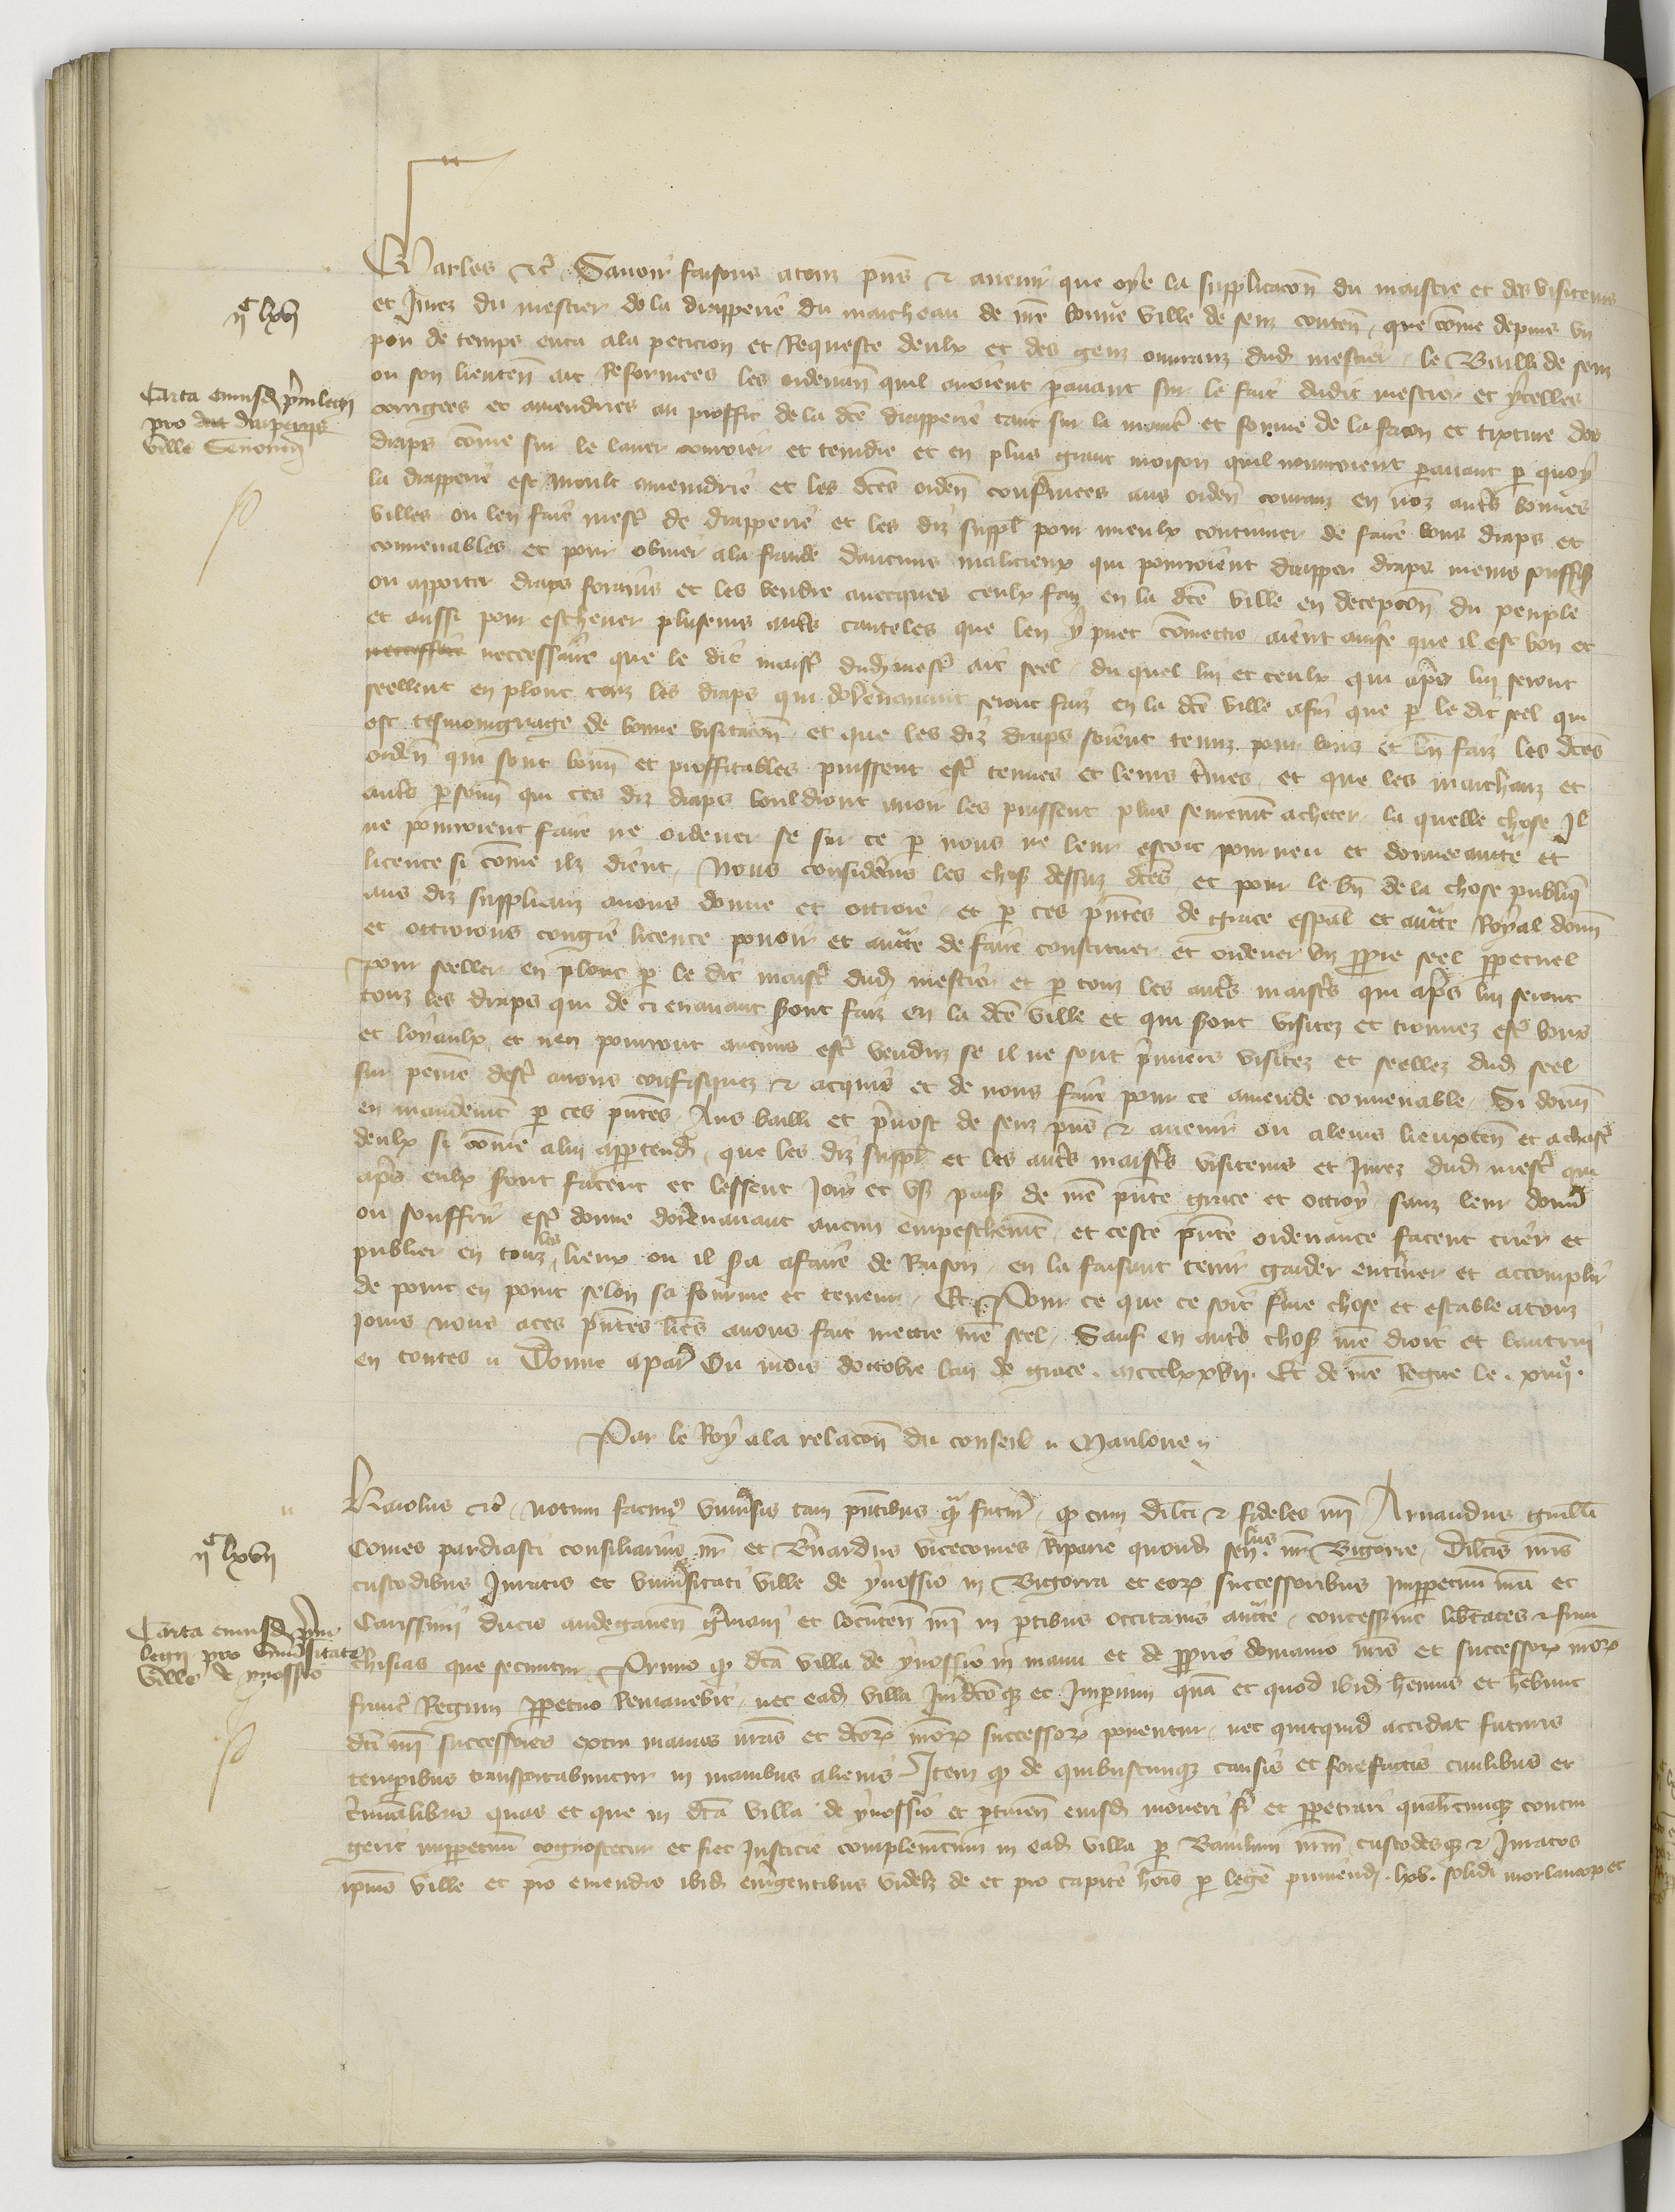 Charles etc. Savoir faisons a touz pns et avenir que oye la supplicacon du maistre et des visiteurs
et Jurez du mestier de la drapperie du marcheau de nre bonne ville de senz conten que come depuis un
pou de temps enca a la peticion et Requeste deulx et des genz ouvranz dud mestier le Bailli de senz
ou son lieuten ait Reformees les ordenan quil avoient pavant sur le fait dudit mestier et ycelles
corrigees et amendries au proffit de la dce drapperie tant sur la manie et forme de la facon et tixture des
draps come sur le laver conroier et teindre et en plus grant moison quil nouvroient pavant p quoy
la drapperie est moult amendrie et les dces orden confmees aus orden couranz en noz auts bonnes
villes ou len fait mest de drapperie et les diz suppl pour mieulx continuer de faire bons draps et
convenables et pour obvier a la fraude daucuns malicieux qui pourroient drapper draps meins souffis
ou apporter draps forains et les vendre avecques ceulx faiz en la dce ville en decepcon du peuple
et aussi pour eschever pluseurs auts cauteles que len y puet comectre aient avise que il est bon et
necessaire neccessaire que le dit maist dud mest ait seel du quel lui et ceulx qui aps lui seront
seellent en plont touz les draps qui dorenavant seront faiz en la dce ville afin que p le dit seel qui
est tesmoingnage de bonne visitacon et que les diz draps soient tenuz pour bons et bn faiz les dces
orden qui sont bonn et proffitables puissent est tenues et leurs tmes et que les marchanz et
auts psonn qui ces diz draps vouldront avoir les puissent plus seuremt acheter la quelle chose Il
ne pourroient faire ne ordener se sur ce p nous ne leur estoit pourveu et donnee auctte et
licence si come ilz dient Nous considerans les choses dessuz dces et pour le bn de la chose publiq
aus diz supplianz avons donne et ottroie et p ces pntes de grace espal et auctte Royal donn
et ottroions congie licence povoir et auctte de faire constituer et ordener un ppre seel ppetuel
pour seeller en plont p le dit maist dud mestier et p touz les auts maists qui aps lui seront
touz les draps qui de ci en avant sont faiz en la dce ville et qui sont visitez et trouvez est bons
et loyaulx et nen pourront aucuns est venduz se il ne sont pmiers visitez et seellez dud seel
sur peine dest avons confisquez et acquis et de nous faire pour ce amende convenable Si donn
en mandemt p ces pntes Aus bailli et pvost de senz pns et avenir ou a leurs lieuxten et a chast
deulx si come a lui appartend que les diz suppl et les auts maists visiteurs et Jurez dud mest qui
aps eulx sont facent et lessent joir et us paisi de nre pnte grace et ottroy sanz leur donn
ou souffrir est donne dorenavant aucun empeschemt et ceste pnte ordenance facent crier et
publier en touz les lieux ou il sa a faire de Raison en la faisant tenir garder entiner et accomplir
de point en point selon sa fourme et teneur Et Pour ce que ce soit fme chose et estable a touz
jours nous a ces pntes lres avons fait mettre nre seel Sauf en auts choses nre droit et lautrui
en toutes Donne a paris Ou mois doctobre lan de grace mccclxxvii Et de nre Regne le xiiij
Par le Roy a la relacon du conseil Maulone
Karolus etc notum facims univsis tam pntibus qm futuris qd cum dilci et fideles nri Arnaudus guillli
Comes pardiasti consiliarius nr et Bnardus vicecomes Riparie quond senllus nr Bigorre dilcis nris
custodibus Juratis et univsitati ville de ynossio in Bigorra et eor successoribus imppetuum nra et
Carissimi ducis andegaven gmani et locuten nri in ptibus occitanis auctte concessint libtates et fran
chisias que secuntur Primo qd dca villa de ynossio in manu et de pprio domanio nris et successor nror
franc Regum ppetuo Remanebit nec ead villa Juridco que et Imperium quam et quod ibid hemus et hebunt
dci nri successores extra manus nras et dcor nror successor ponentur nec quitquid accidat futuris
temporibus transportabuntur in manibus alienis Item qd de quibuscumque causis et forefactis civilibus et
criminalibus quas et que in dca villa de ynossio et ptinen eiusd moveri si et ppetrari qualitcumque contin
gerit imppetuum cognoscetur et fiet Justicie complementum in ead villa p Baiulum nrm custodesque et Juratos
ipius ville et pro emendis ibid emgentibus videlz de et pro capite hois p legem puniend lxv solidi morlanor et
ijc lxvj
Carta cuiusd privilegii
pro draperijs
ville Senonen
ijc lxvij
Carta cuiusd privi
legii pro Univsitate
ville de ynossio